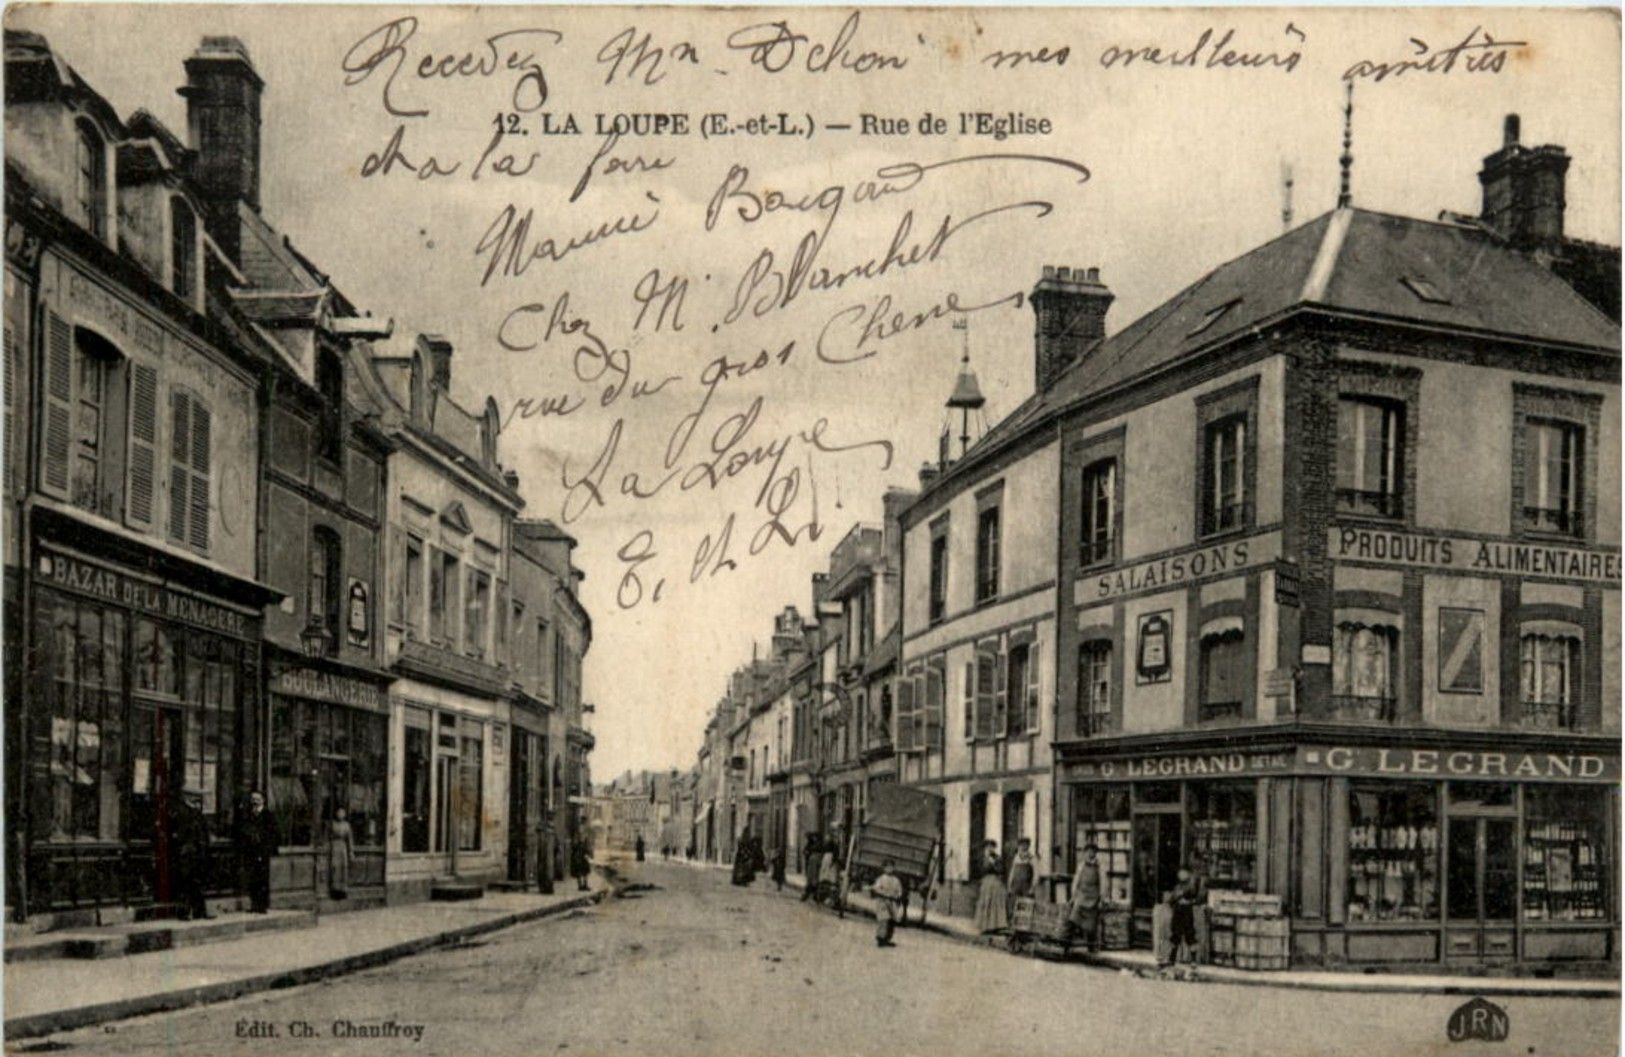 Recevez Mr Dehon mes meilleurs amitiés
12. LA LOUPE (E.-et-L.) — Rue de l'Eglise
et a la
Chez M. Blanchet
rue du gros Chene
La Loupe
E. et L.
BAZAR DE LA MENAGERE
BOULANGERIE
SALAISONS
PRODUITS ALIMENTAIRES
G. LEGRAND DETAIL
G. LEGRAND
Edit. Ch. Chauffroy
JRN